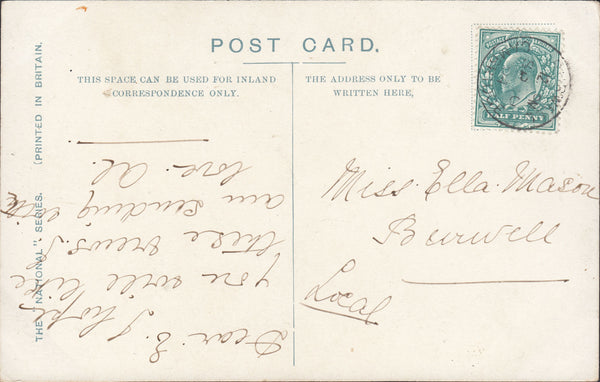 POST CARD.
THIS SPACE, CAN BE USED FOR INLAND
CORRESPONDENCE ONLY.
THE ADDRESS ONLY TO BE
WRITTEN HERE,
HALF PENNY
Miss Ella Mason
Burwell
Local
Dear E. I hope
you will like
these views. I
am sending with
love. Al.
THE "NATIONAL" SERIES.
(PRINTED IN BRITAIN.